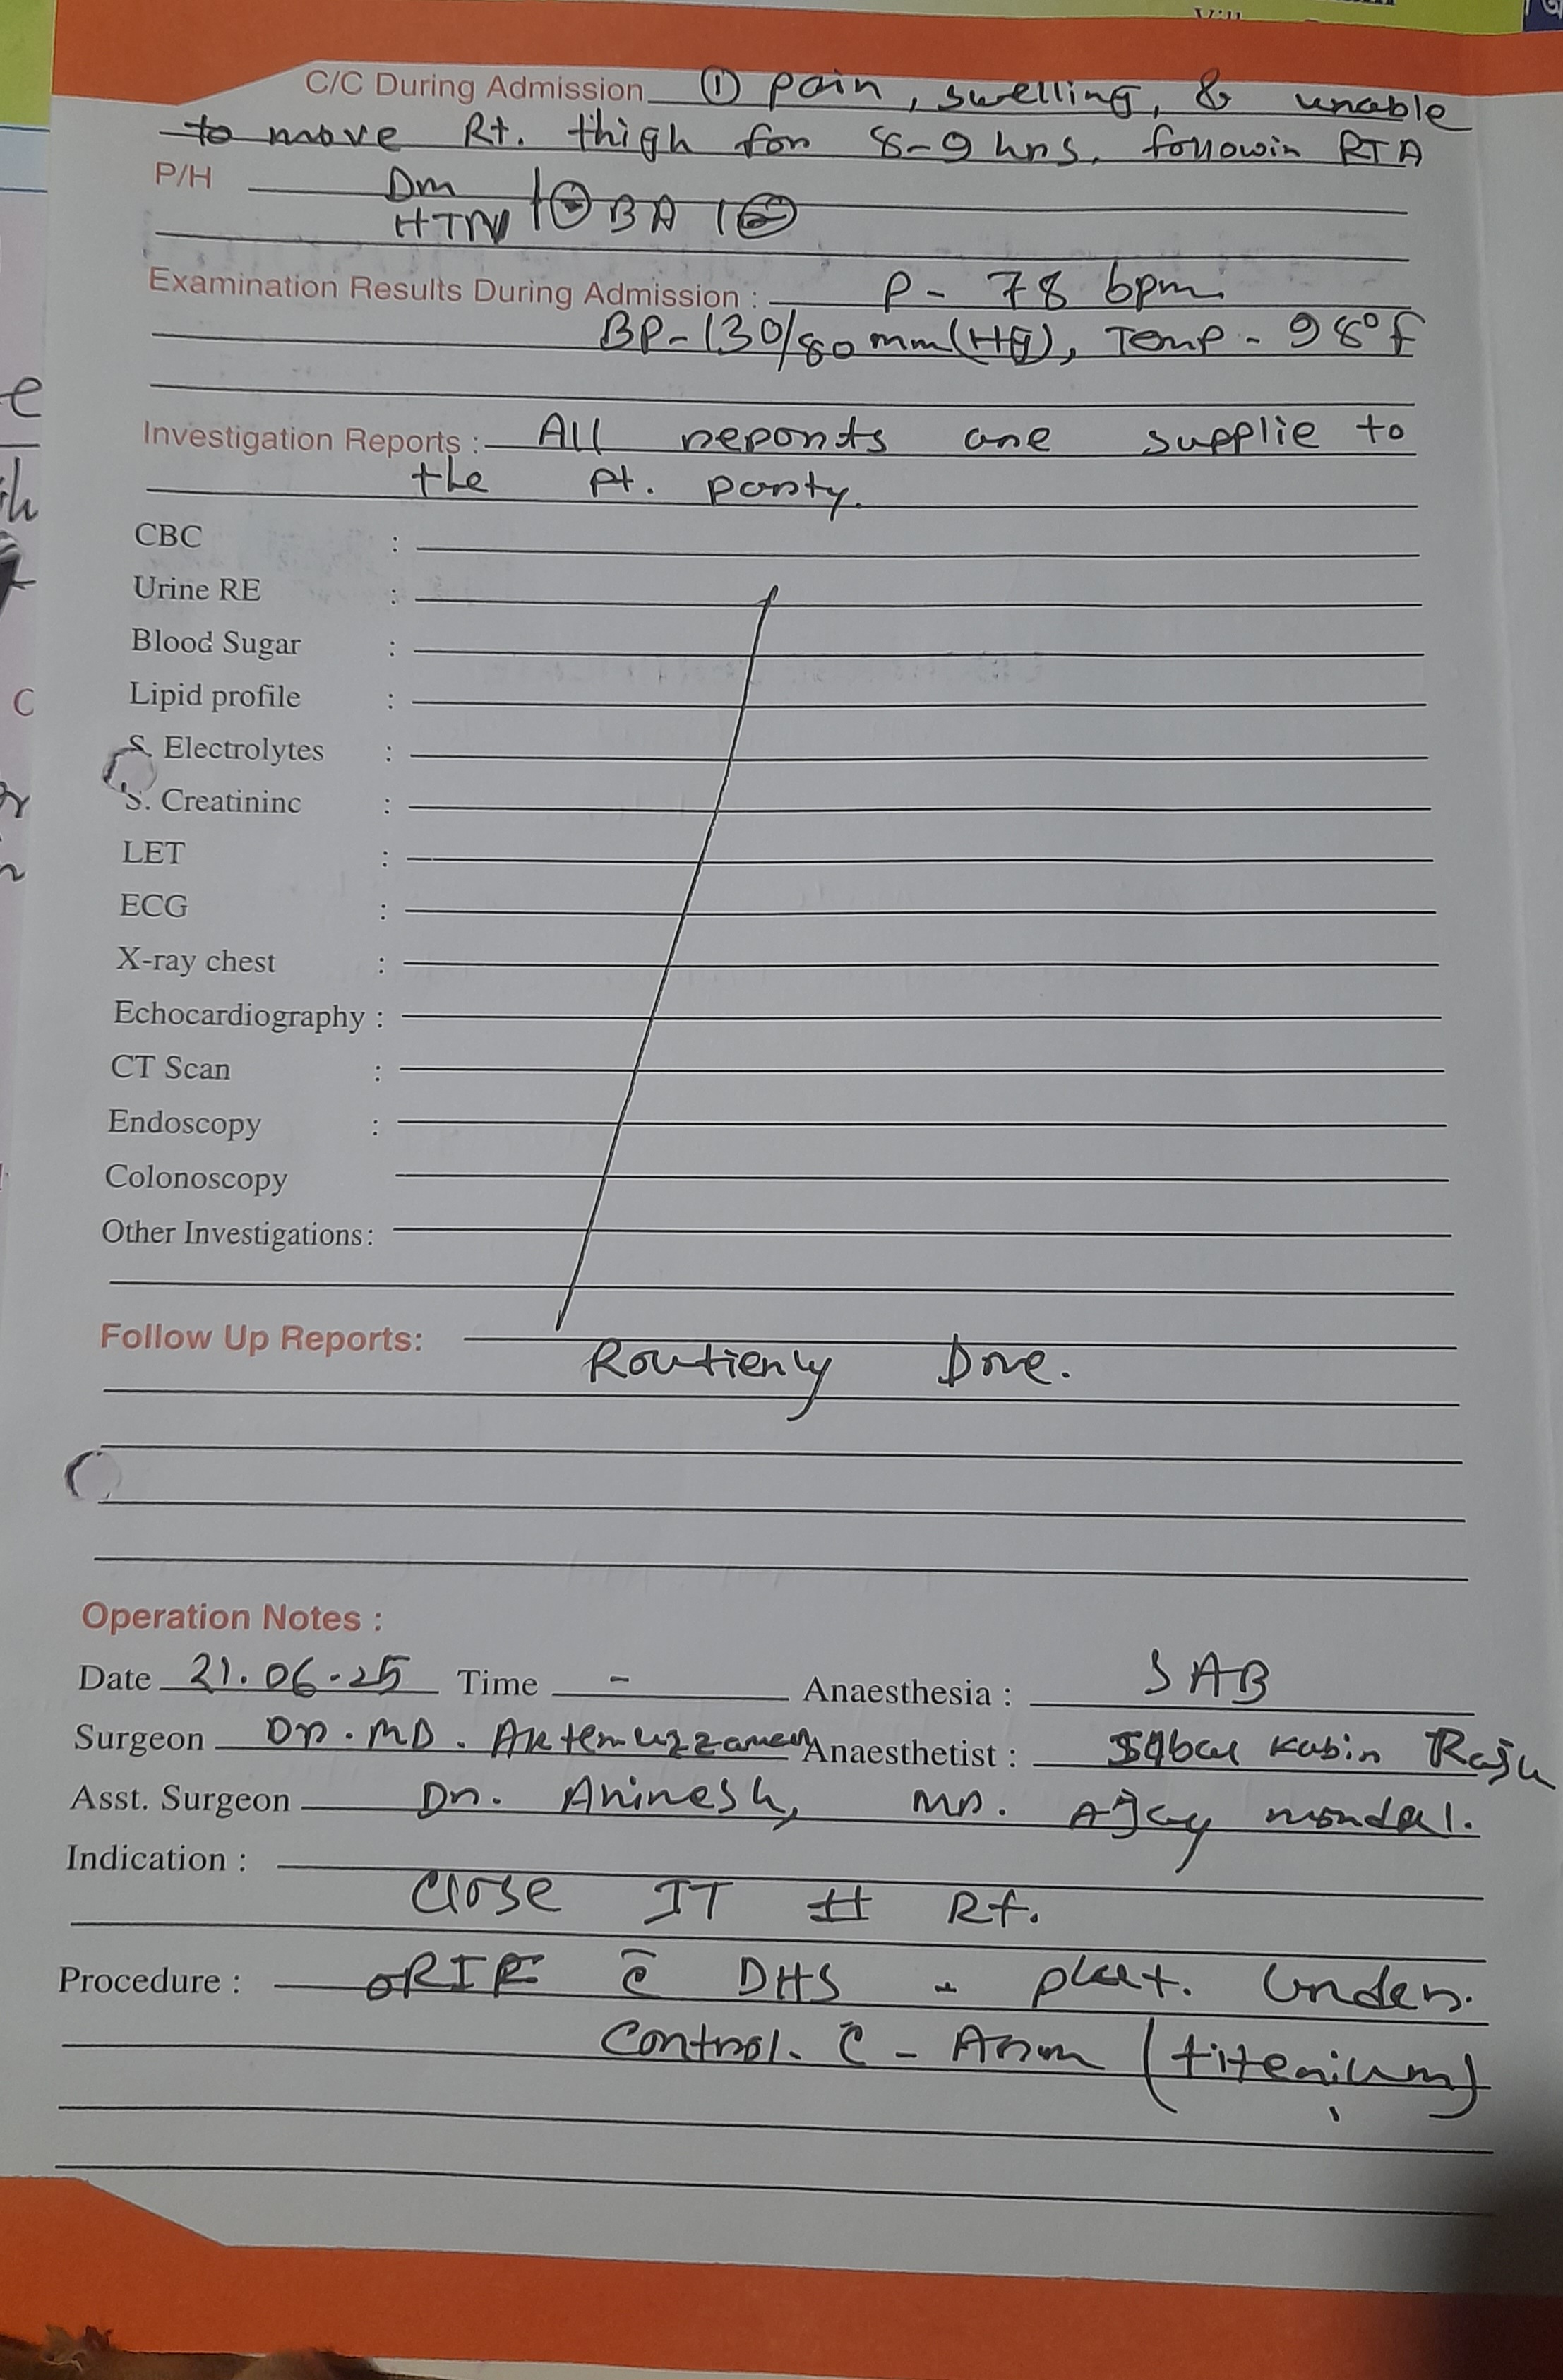 C/C During Admission ① pain, swelling, & unable
to move Rt. thigh for 8-9 hrs. followin RTA
P/H Dm
HTN ⊖ BA ⊖
Examination Results During Admission : P - 78 bpm.
BP - 130/80 mm(Hg), Temp - 98°f
Investigation Reports : All reports are supplie to
the Pt. party.
CBC :
Urine RE :
Blood Sugar :
Lipid profile :
S. Electrolytes :
S. Creatininc :
LET :
ECG :
X-ray chest :
Echocardiography :
CT Scan :
Endoscopy :
Colonoscopy
Other Investigations:
Follow Up Reports:
Routienly Done.
Operation Notes :
Date 21.06.25 Time - Anaesthesia : SAB
Surgeon Dr. MD. Aktemuzzaman Anaesthetist : Kabir Raju
Asst. Surgeon Dr. Animesh, Mr. Ajay mondal.
Indication :
Close IT # Rt.
Procedure : ORIF c̄ DHS - plat. Under.
Control. C - Arm (titenium)